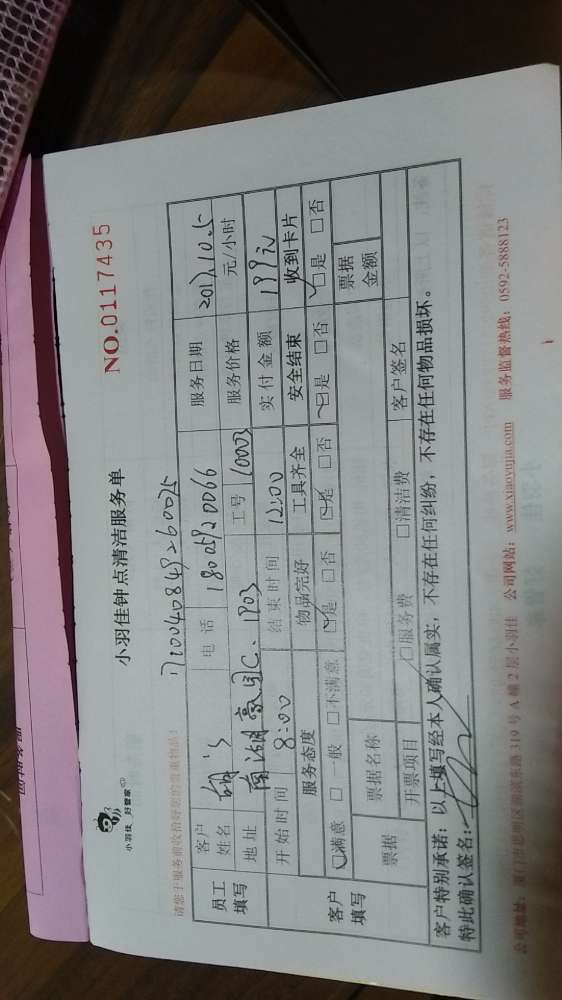 小羽佳 好管家
小羽佳钟点清洁服务单
NO.0117435
请您于服务前收拾好您的贵重物品!
员工填写
客户姓名
电话 18005920066
服务日期 2017.10.5
地址 南湖豪园C、1703
工号 10003
服务价格 元/小时
开始时间 8:00
结束时间 12:00
实付金额 199元
客户填写
服务态度 物品完好 工具齐全 安全结束 收到卡片
满意 □一般 □不满意 是 □否 是 □否 是 □否 □是 □否
票据
票据名称
票据金额
开票项目 □服务费 □清洁费
客户签名
客户特别承诺:以上填写经本人确认属实,不存在任何纠纷,不存在任何物品损坏。
特此确认签名:
公司地址:厦门市思明区湖滨东路319号A幢2层小羽佳 公司网站:www.xiaoyujia.com 服务监督热线:0592-5888123